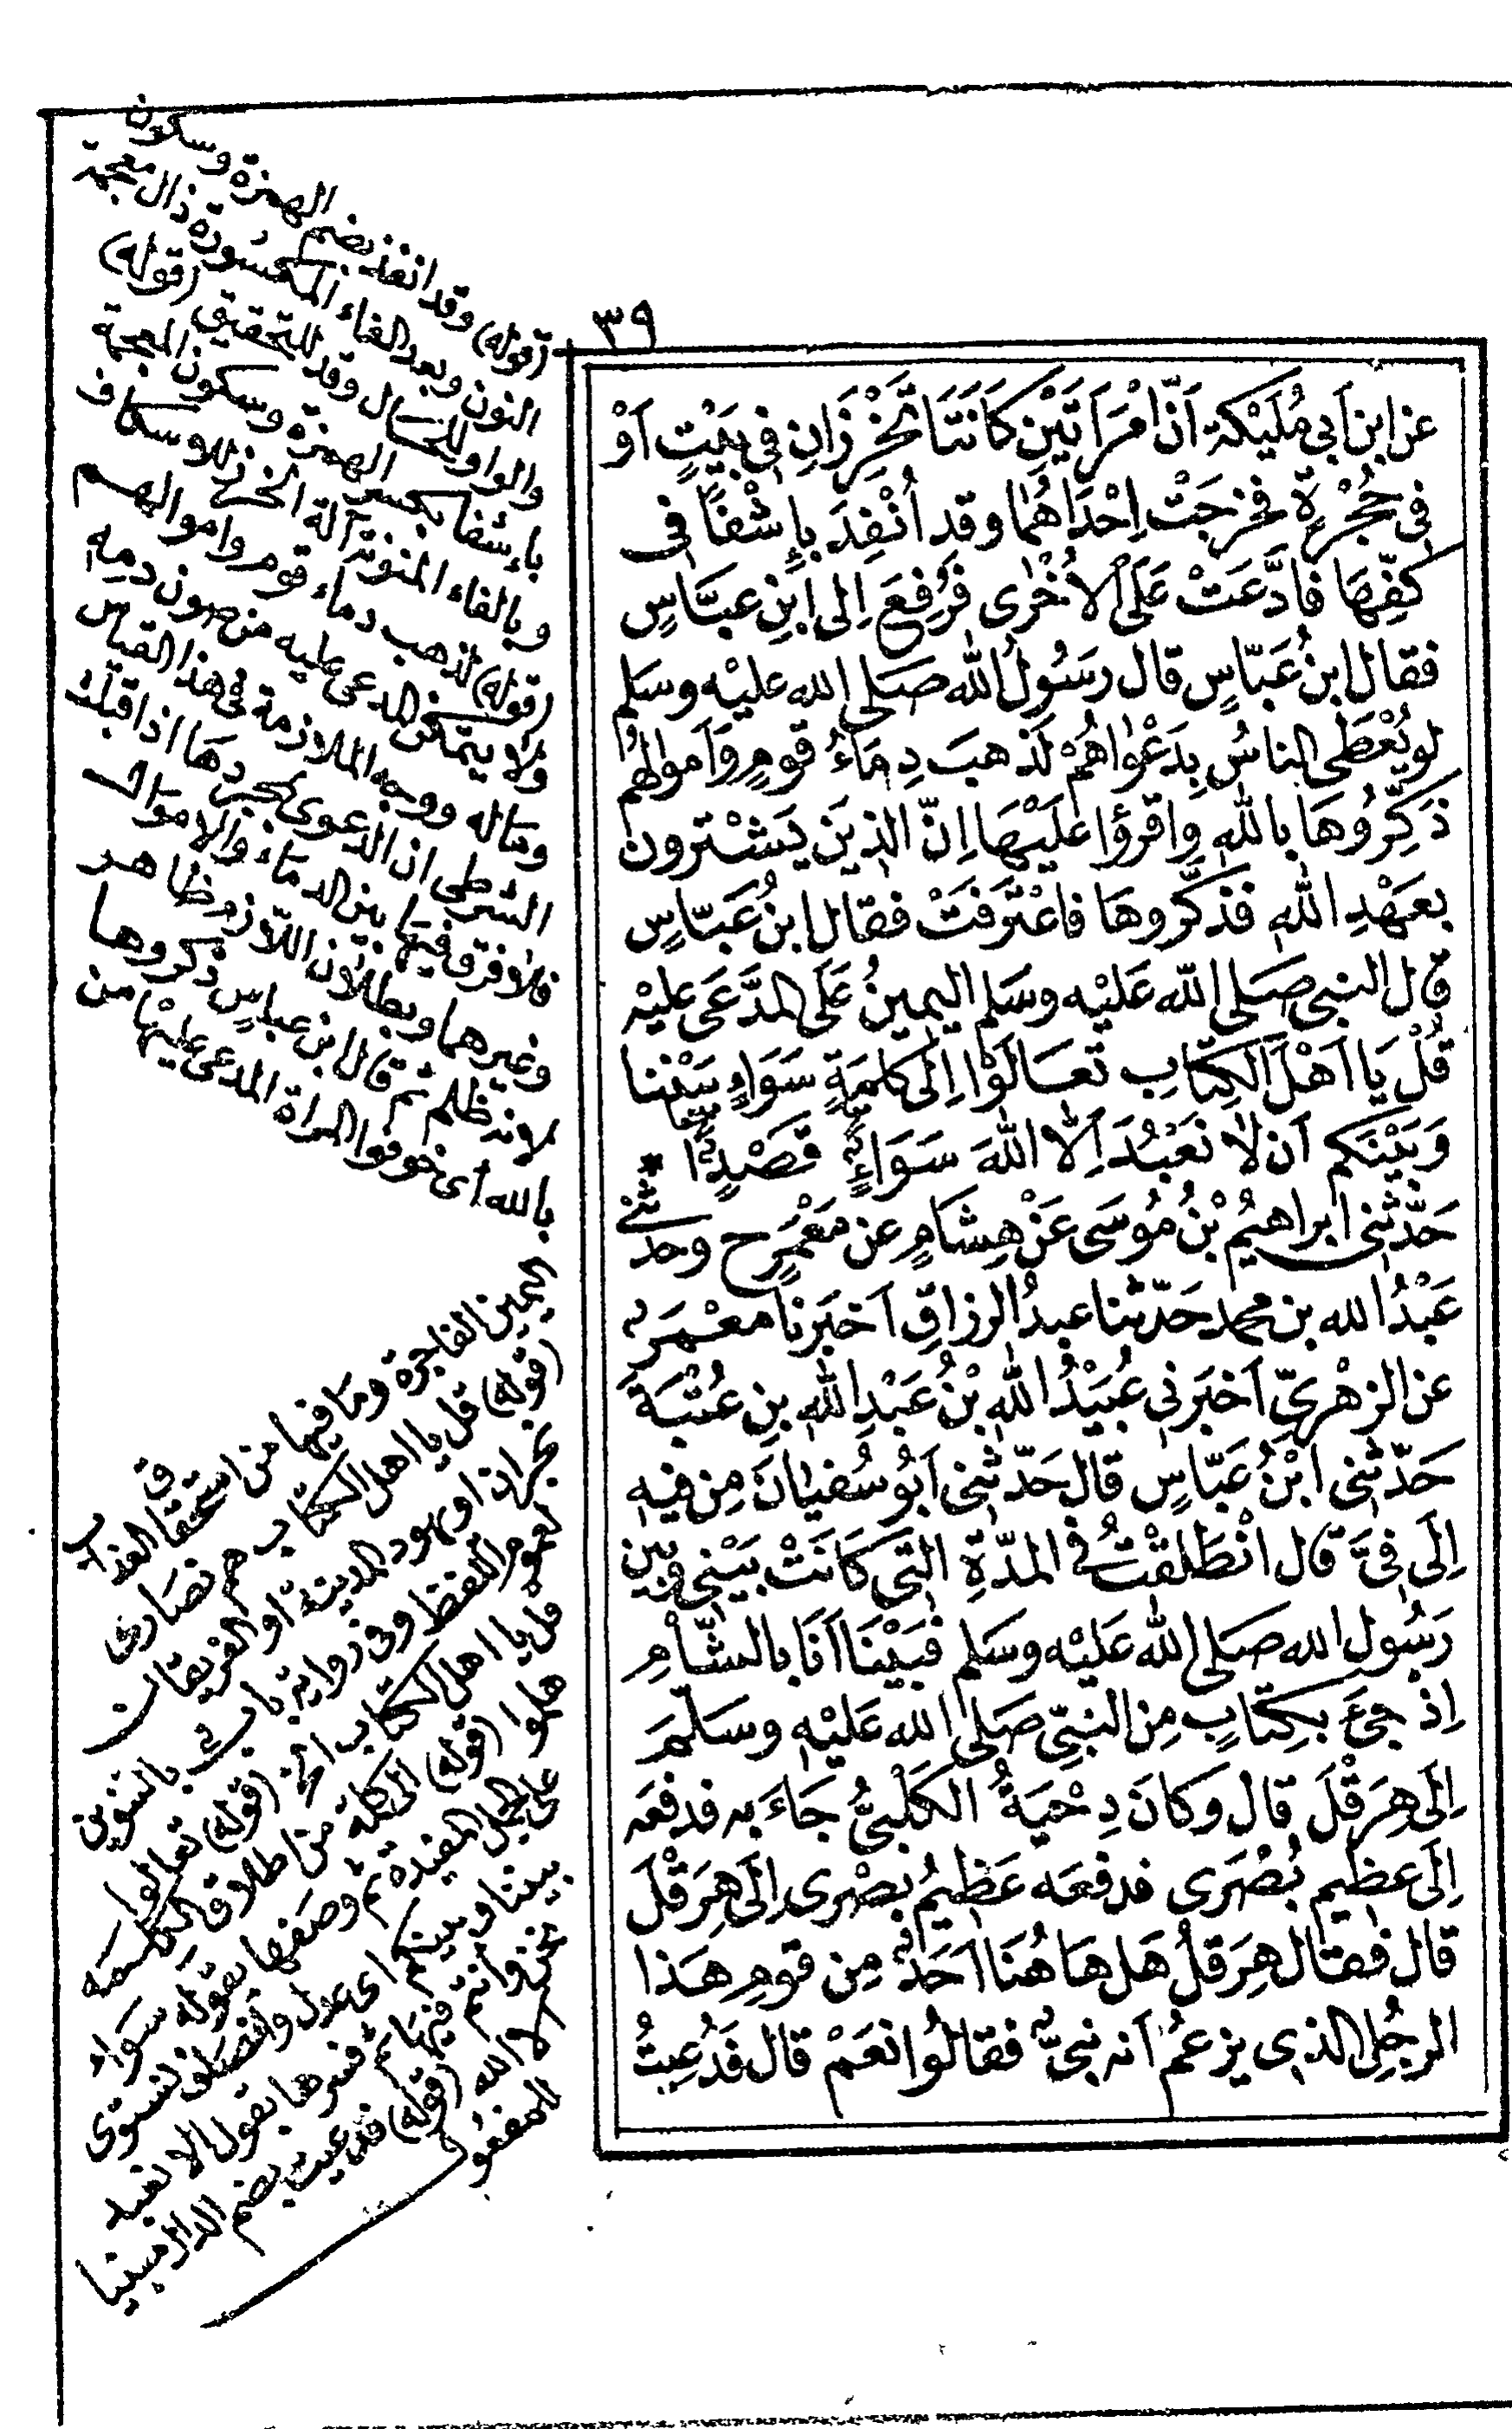 ٣٩
عن ابن اَبى مُلَيْكة اَنّ امْرَاَتَيْنِ كَانَتَا تَخْرِزَانِ فى بَيْتٍ اَوْ
فى حُجْرةٍ فخرجَتْ اِحْدَاهُما وقد اُنْفِذَ بِإِشْفًا فى
كفِّهَا فادَّعَتْ عَلَى الاُخْرٰى فَرُفِعَ اِلى ابْنِ عبّاسٍ
فقال ابنُ عَبّاسٍ قال رسَولُ الله صَلى الله عليْه وسَلم
لو يُعْطَى الناسُ بِدَعْوٰاهُمْ لَذهبَ دِمَاءُ قومٍ وَاَموالُهم
ذَكِّرُوهَا بالله وَاقرؤا عَلَيْهَا اِنّ الذِينَ يَشْترون
بعَهْدِ اللهِ فَذكَّروهَا فاعْتَرفَتْ فقال ابنُ عَبّاسٍ
قال النبى صَلى الله عَلَيْه وسَلم اليمينُ عَلَى المدَّعَى عليْه
قُلْ يَا اَهْلَ الكِتَابِ تعَالَوْا اِلَى كلمَةٍ سَوَاءٍ بَيْننا
وَبَيْنَكم اَن لاٰ نَعْبُدَ اِلاّ اللهَ سَوَاءٍ قَصْدٍا *
حَدّثنى ابراهيمُ بْنُ مُوسَى عَنْ هِشَامٍ عن مَعْمَرٍ ح وحدثنى
عَبْدُ الله بن محمد حَدّثنا عبدُ الرزاقِ اَخبَرنا معْمَر
عن الزهْرىِّ اَخبَرنى عُبَيْدُ اللهِ بْنُ عَبْدِ اللهِ بنِ عُتْبَةَ
حَدّثنى ابْنُ عَبّاسٍ قال حَدّثنى اَبُو سُفيٰانَ مِن فيه
اِلَى فىَّ قال انْطَلَقْتُ فى المدّةِ التى كَانَتْ بَيْنى وبين
رَسُول الله صَلى الله عَلَيْه وسَلم فبَيْنَا اَنَا بالشّاْمِ
اِذ جىءَ بكِتَابٍ مِن النبىِّ صَلى الله عَليْهِ وسَلّمَ
اِلَى هِرَقْلَ قال وَكانَ دِحْيَةُ الكَلْبىُّ جَاءَ به فدفعَه
اِلَى عظيم بُصْرَى فدفعَه عَظيمُ بصْرى اِلَى هِرَقْلَ
قال فقال هِرَقلُ هَل هَاهُنَا اَحَدٌ مِن قومِ هَذا
الرجُلِ الذى يزعمُ اَنه نبىٌّ فقالُوا نعَمْ قال فَدُعِيتُ
(قوله) وقد انفذ بضم الهمزة وسكون
النون وبعد الفاء المكسورة ذال معجمة
والواو للحال وقد للتحقيق (قوله)
بإشفا بكسر الهمزة وسكون المعجمة
وبالفاء المنونة آلة الخرز للاسكاف
(قوله) لذهب دماء قوم واموالهم
ولا يتمكن المدعى عليه من صون دمه
وماله ووجه الملازمة فى هذا القياس
الشرطى ان الدعوى بمجردها اذا قبلت
فلا فرق فيها بين الدماء والاموال
وغيرهما وبطلان اللازم ظاهر
لانه ظلم ثم قال ابن عباسٍ ذكروها
بالله اَى خوفوا المراة المدعى عليْها من
اليمين الفاجرة وما فيها من استحقاق العذاب
(قوله) قل يا اهل الكتاب هم نصَارى
نجران او يهود المدينة او الفريقان
لعموم اللفظ وفى رواية باب بالتنوين
قل يا اهل الكتاب الخ (قوله) تعالوا
هلموا (قوله) الى كلمة من اطلاق الكلمه
على الجمل المفيدة ثم وصَفها بقوله سَواء
بيننا وبينكم اى عدل ونصف نستوى
نحن وانتم فيها ثم فسرها بقول الا نعبد
الا الله (قوله) فدعيت بضم الدال مبنيا
للمفعول